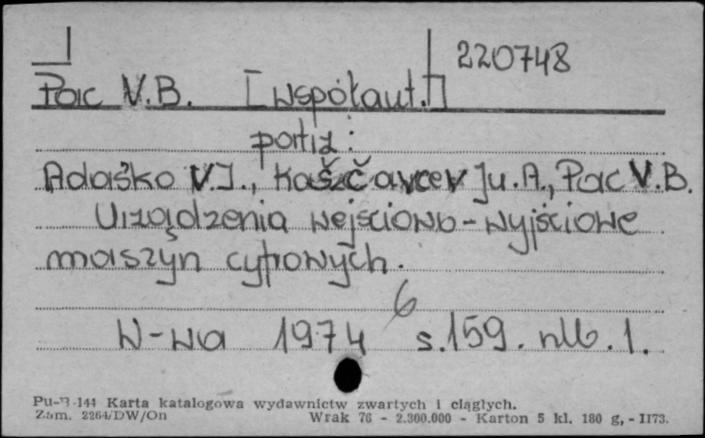 220748
Pac V.B. [współaut.]
patrz:
Adaśko V.I., Kaščavcev Ju.A., Pac V.B.
Urządzenia wejściowo-wyjściowe
maszyn cyfrowych.
6
W-wa 1974 s.159. nlb.1.
Pu-B-144 Karta katalogowa wydawnictw zwartych i ciągłych.
Zam. 2264/DW/On Wrak 76 - 2.300.000 - Karton 5 kl. 180 g, - II73.